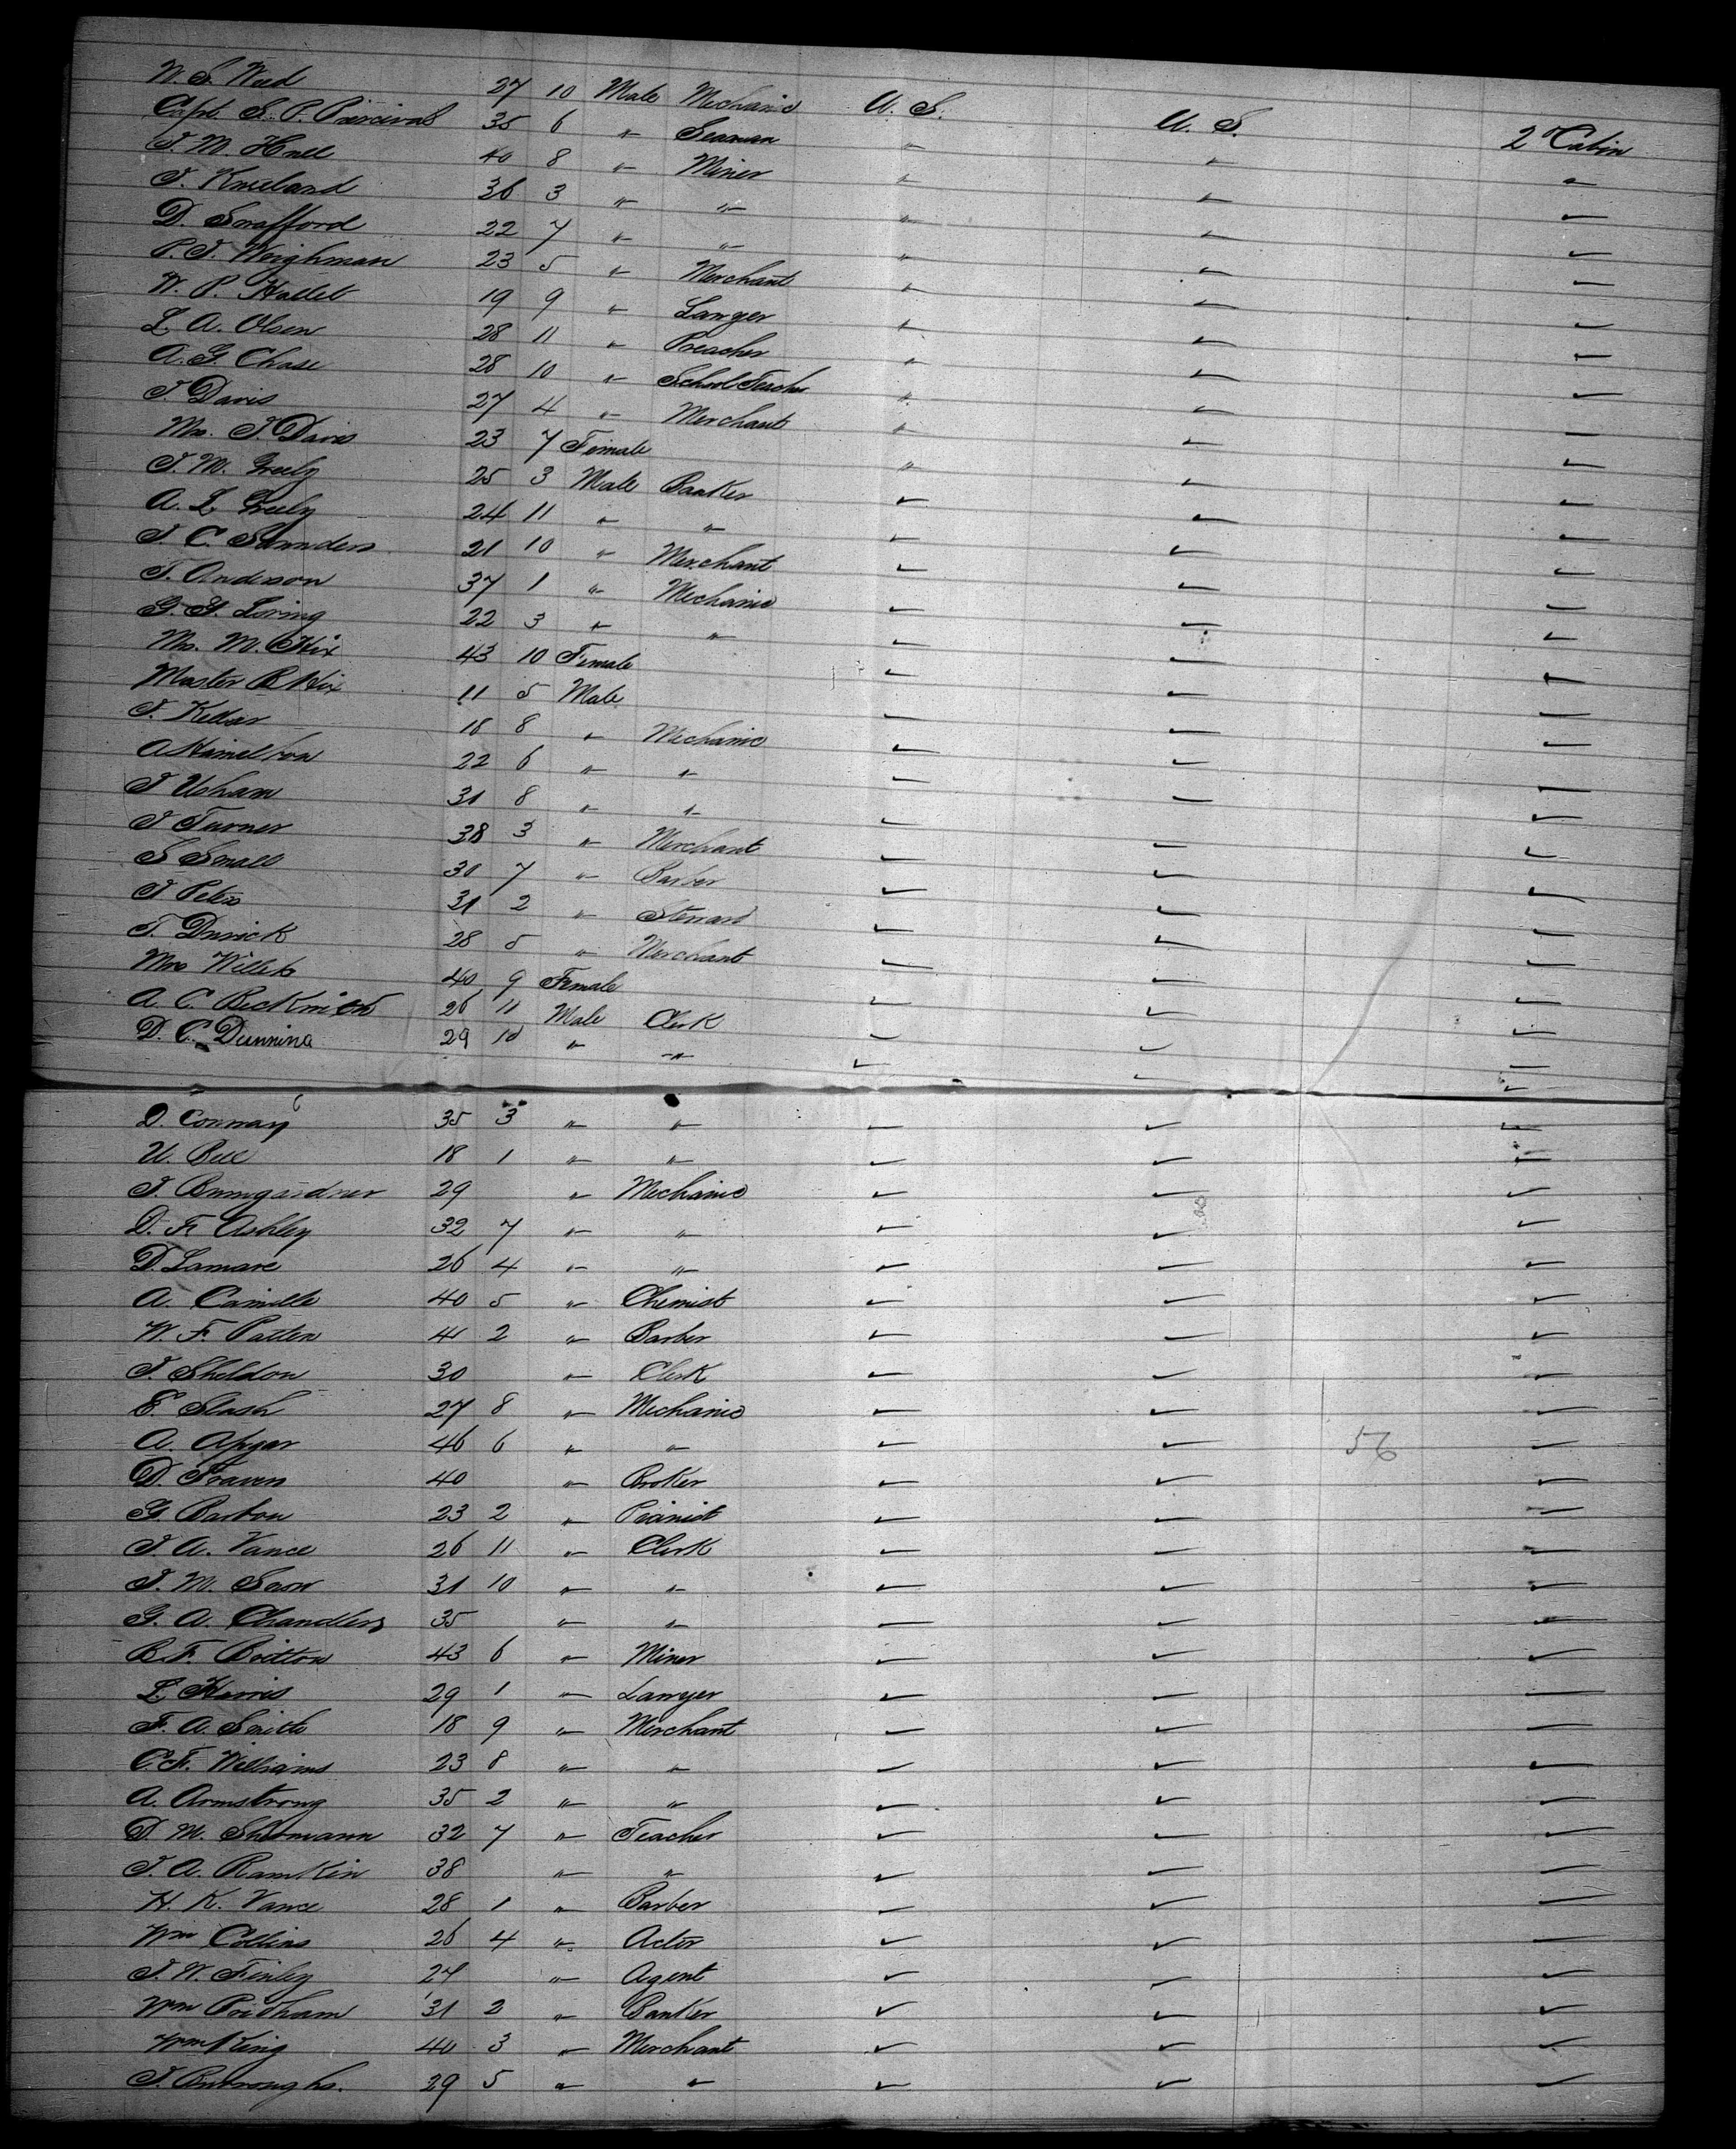 W. S. Weed 27 10 Male Mechanic U. S. U. S. 2d Cabin
Capt. S. P. Percival 35 6 " Seaman " " "
J. M. Hull 40 8 " Miner " " "
J. Kneeland 36 3 " " " " "
D. Swafford 22 7 " " " " "
P. J. Weighman 23 5 " Merchant " " "
W. P. Hallet 19 9 " Lawyer " " "
L. A. Olsen 28 11 " Preacher " " "
A. G. Chase 28 10 " School Teacher " " "
J. Davis 27 4 " Merchant " " "
Mrs. J. Davis 23 7 Female " " "
J. M. Greely 25 3 Male Banker " " "
A. L. Greely 24 11 " " " " "
J. C. Saunders 21 10 " Merchant " " "
T. Anderson 37 1 " Mechanic " " "
G. G. Loring 22 3 " " " " "
Mrs. M. Hix 43 10 Female " " "
Master R Hix 11 5 Male " " "
J. Kellar 18 8 " Mechanic " " "
A Hamelton 22 6 " " " " "
J Usham 31 8 " " " " "
J Turner 38 3 " Merchant " " "
S Small 30 7 " Barber " " "
J Peters 31 2 " Steward " " "
T. Durick 28 5 " Merchant " " "
Mrs Willets 40 9 Female " " "
A. C. Beckwith 26 11 Male Clerk " " "
D. C. Dunning 29 10 " " " " "
D. Conway 35 3 " " " " "
U. Bell 18 1 " " " " "
J. Bumgardner 29 " Mechanic " " "
D. F. Ashley 32 7 " " " " "
D. Lamare 26 4 " " " " "
A. Camille 40 5 " Chemist " " "
W. F. Patten 41 2 " Barber " " "
J. Sheldon 30 " Clerk " " "
E. Slash 27 8 " Mechanic " " "
A. Apgar 46 6 " " " " 56 "
D. Fraven 40 " Broker " " "
G. Barton 23 2 " Pianist " " "
J. A. Vance 26 11 " Clerk " " "
J. M. Saw 31 10 " " " " "
G. A. Chandlers 35 " " " " "
B. F. Britton 43 6 " Miner " " "
L. Harris 29 1 " Lawyer " " "
F. A. Smith 18 9 " Merchant " " "
C. F. Williams 23 8 " " " " "
A. Armstrong 35 2 " " " " "
D. M. Shermann 32 7 " Teacher " " "
J. A. Ramkin 38 " " " " "
H. K. Vance 28 1 " Barber " " "
Wm Collins 26 4 " Actor " " "
J. W. Finley 27 " Agent " " "
Wm Pridham 31 2 " Banker " " "
Wm King 40 3 " Merchant " " "
J. Burroughs. 29 5 " " " " "